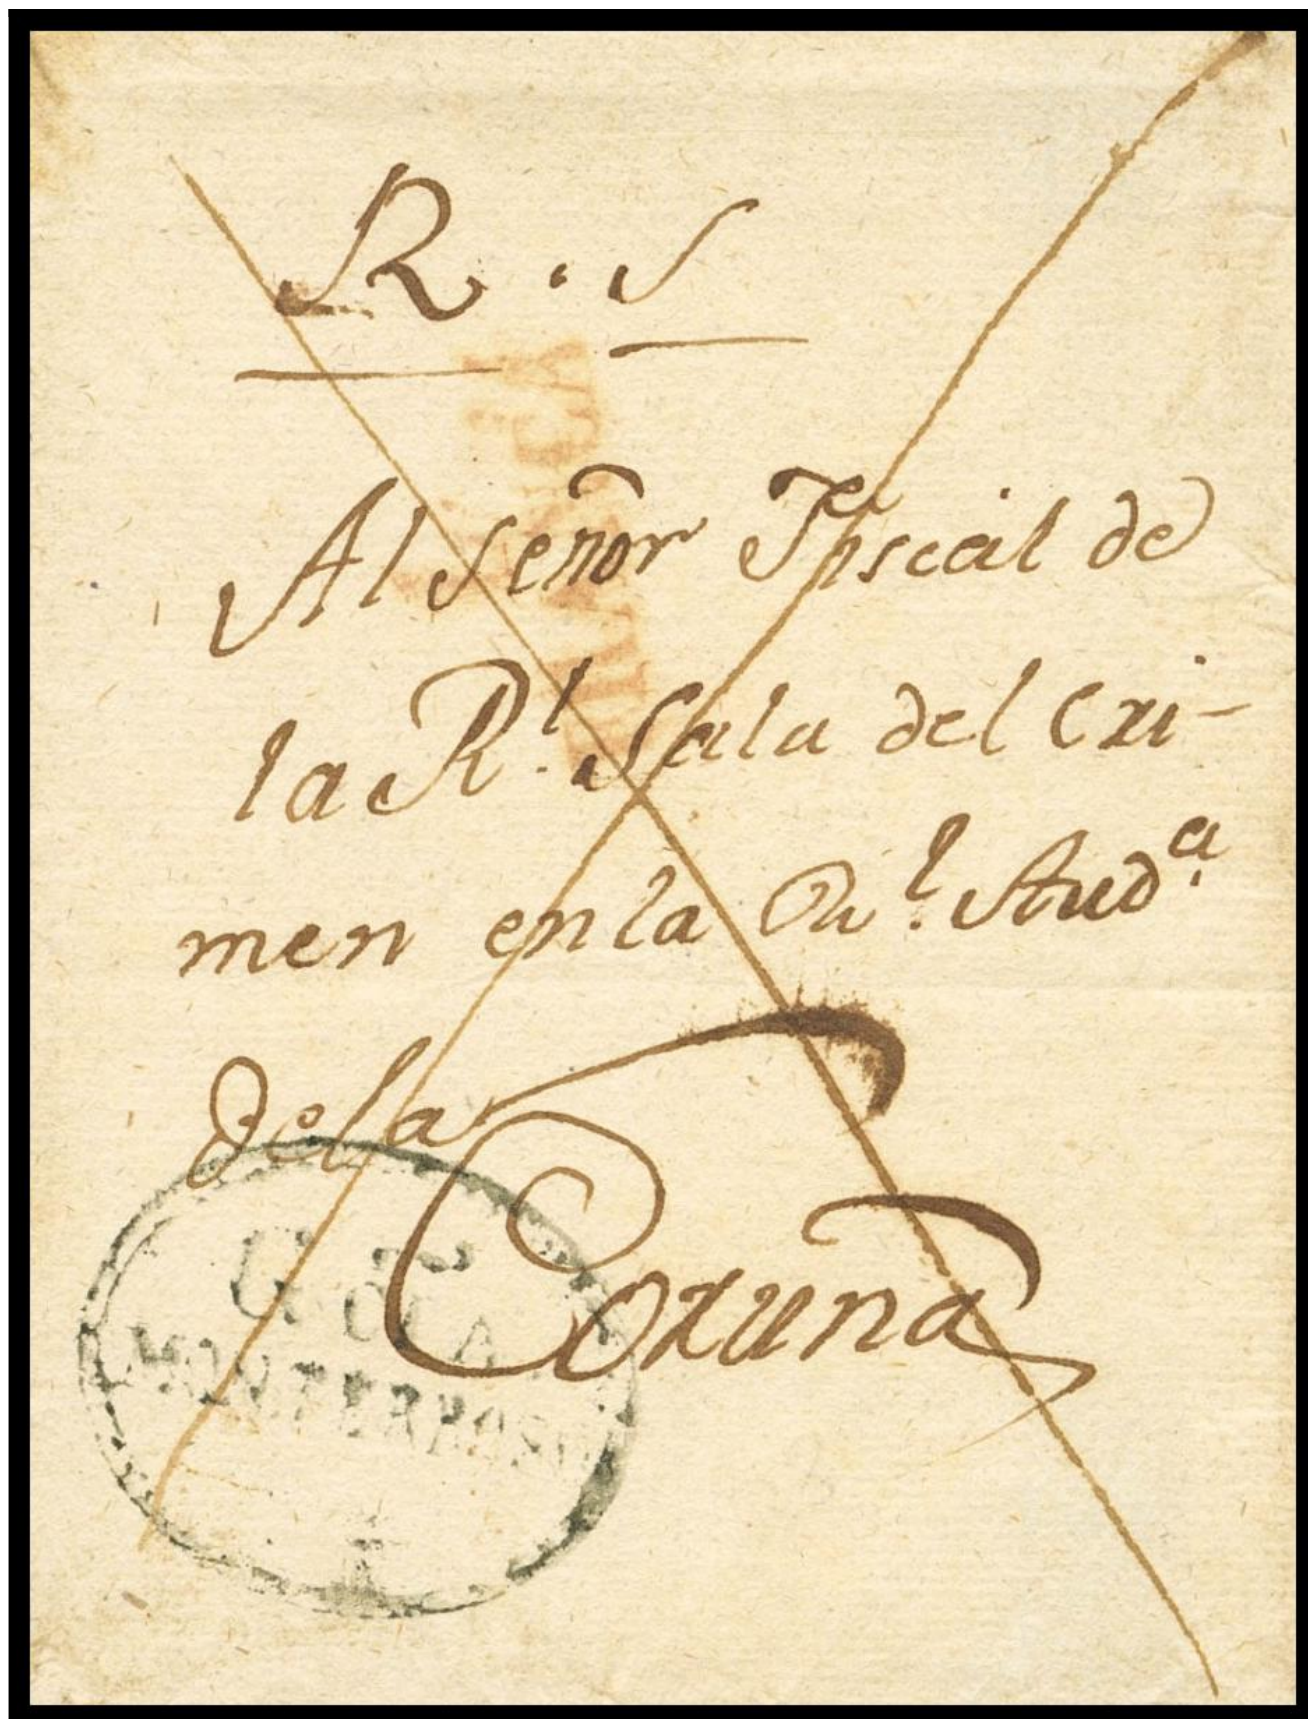 R. S
Al Señor Fiscal de
la R.l Sala del Cri-
men en la Rl. Aud.a
de la
Coruña
MONTERROSO